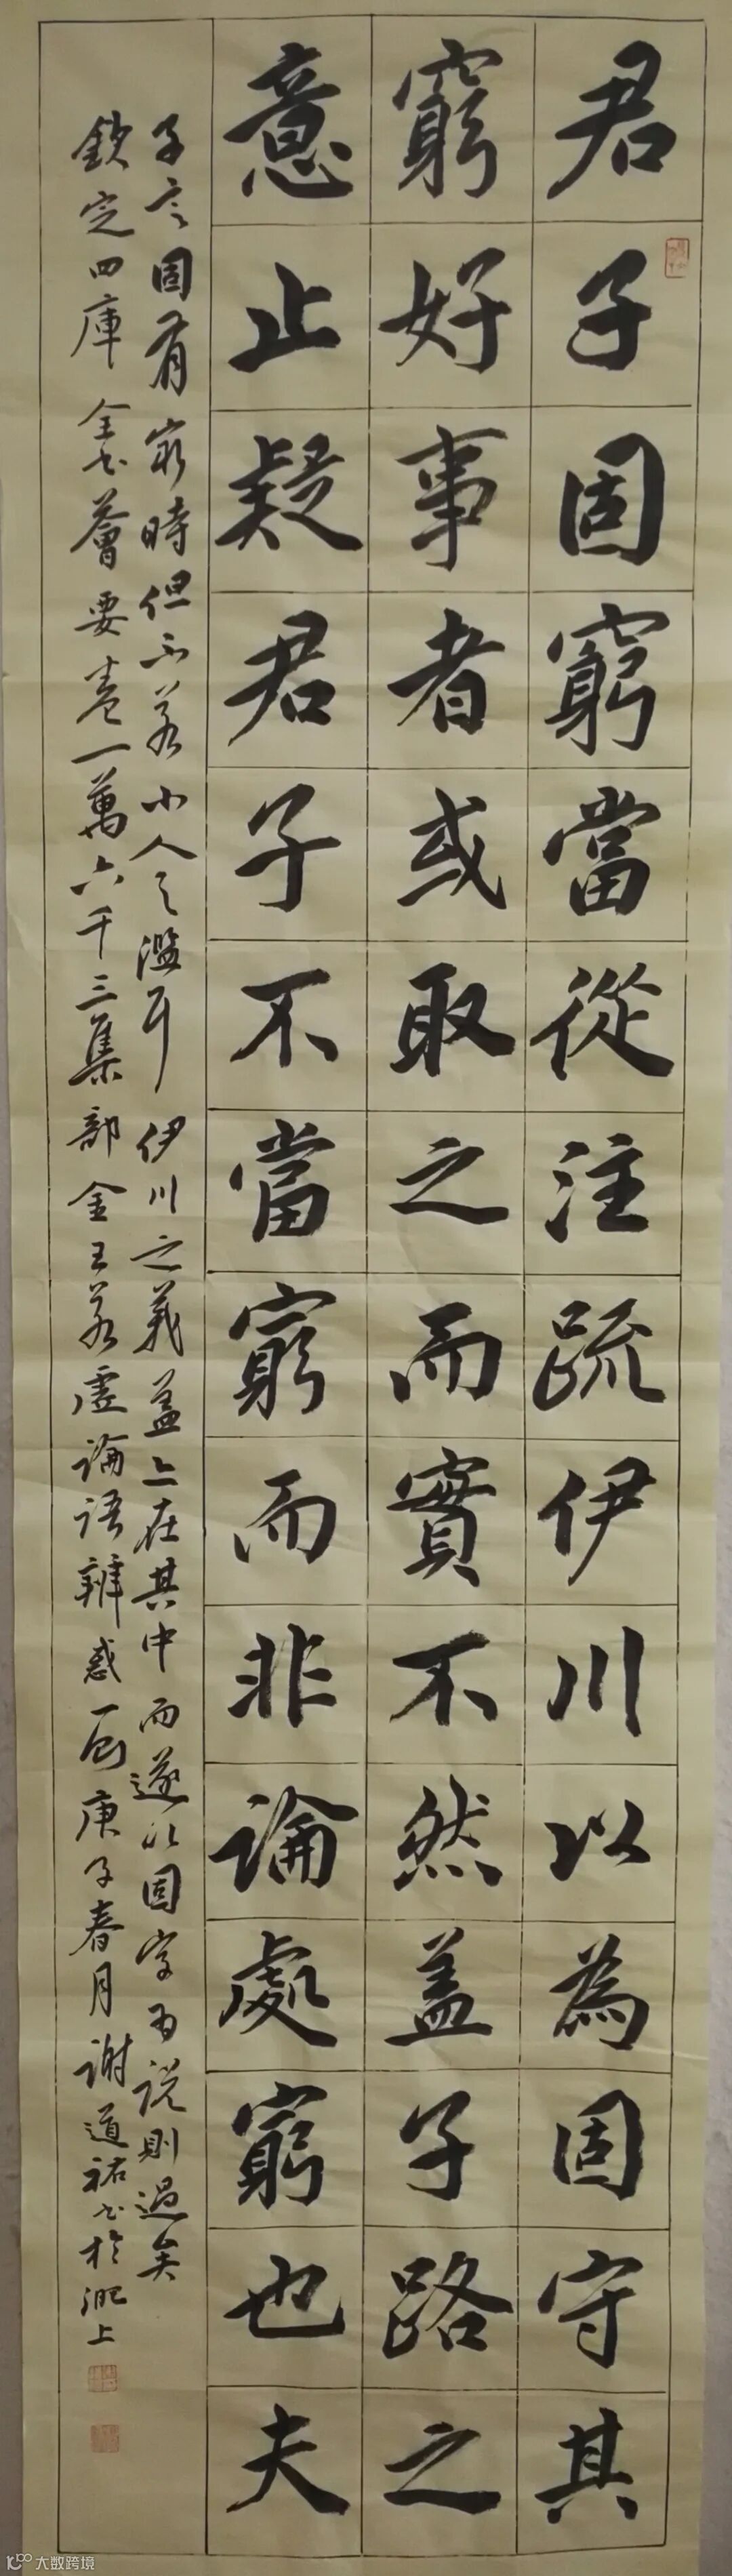 君子固窮當從注疏伊川以為固守其
窮好事者或取之而實不然盖子路之
意止疑君子不當窮而非論處窮也夫
子言固有窮時但不若小人之濫耳伊川之義盖亦在其中而遂以固字為说則過矣
欽定四庫全書薈要卷一萬六千三集部金王若虛論語辨惑一則庚子春月谢道祐书於淝上
大数跨境